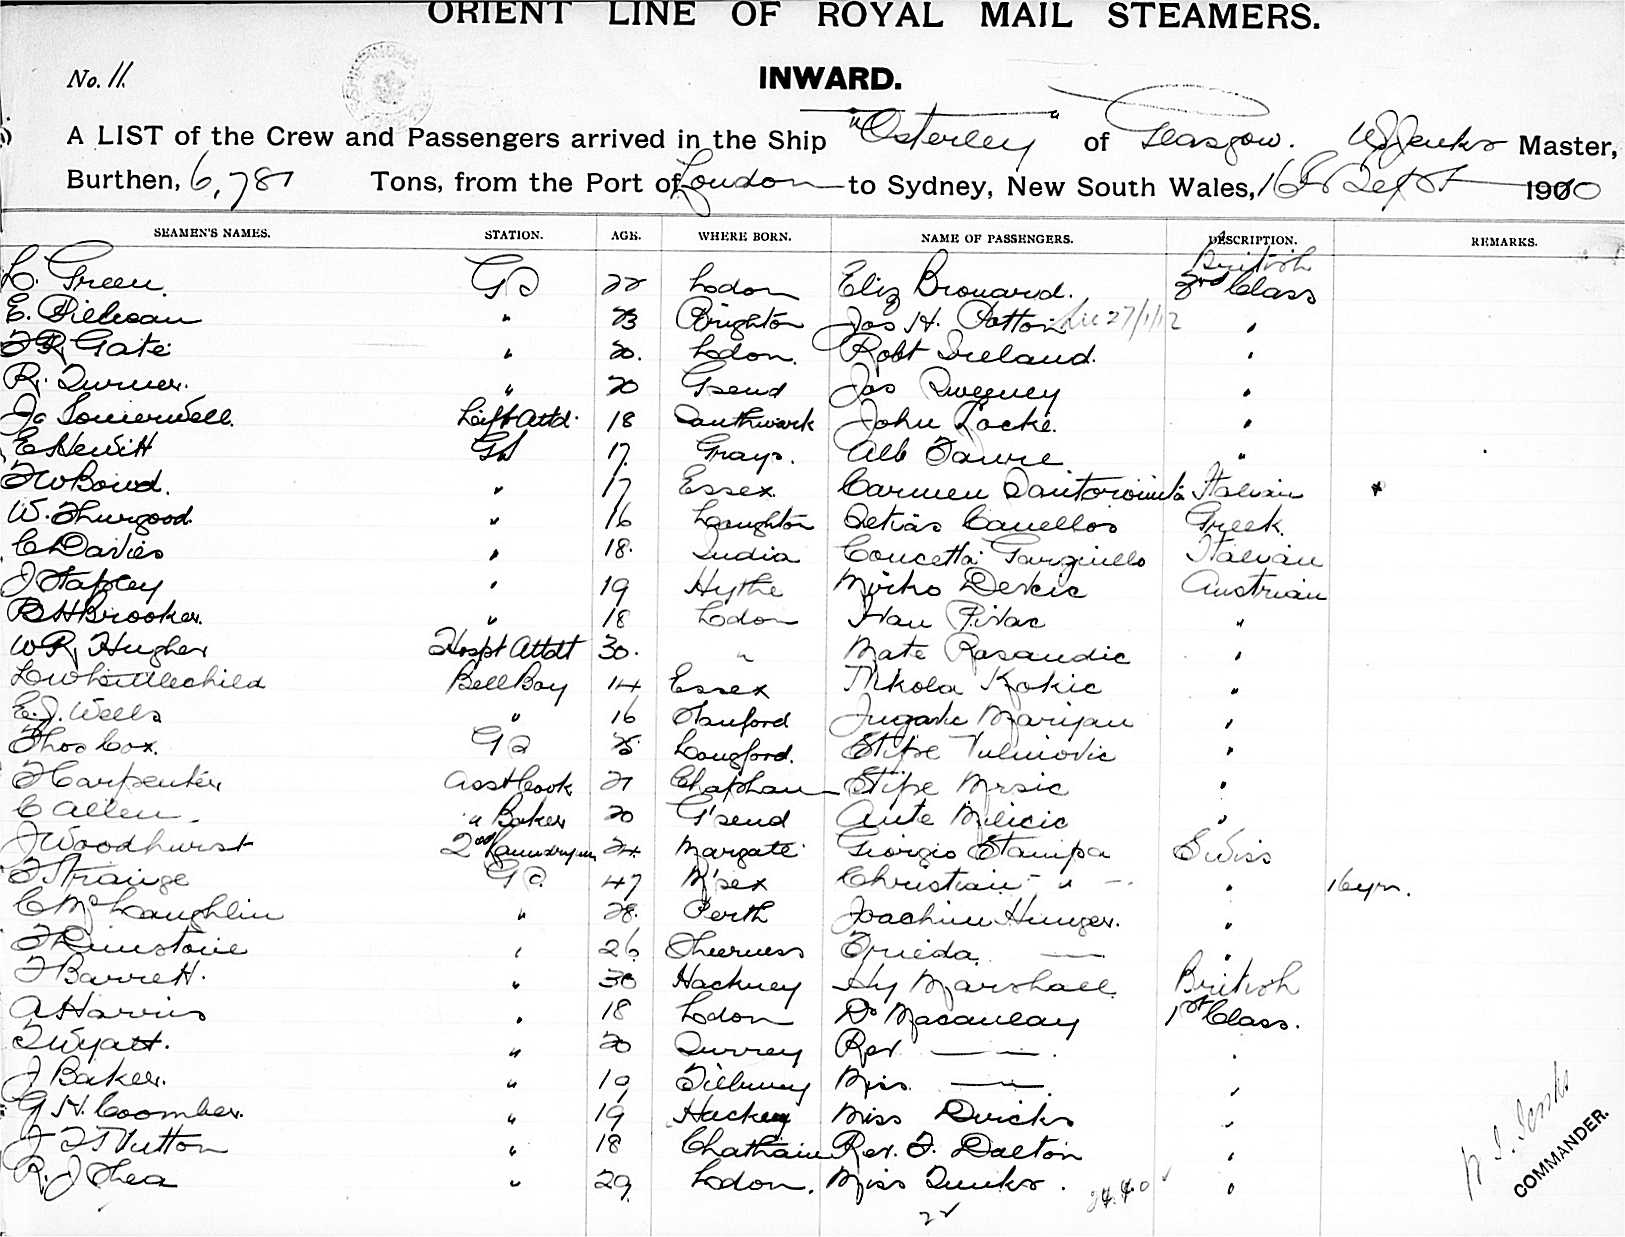 ORIENT LINE OF ROYAL MAIL STEAMERS.
No. 11.
INWARD.
A LIST of the Crew and Passengers arrived in the Ship "Osterley" of Glasgow. Jenks Master,
Burthen, 6,781 Tons, from the Port of London to Sydney, New South Wales, 16 Sept 1910
SEAMEN'S NAMES. STATION. AGE. WHERE BORN. NAME OF PASSENGERS. DESCRIPTION. REMARKS.
British
L. Green. GS 22 Lodon Eliz Brouard. 3rd Class
E. " 23 Brighton Jas H. Patton 27/1/12 "
F R Gate " 20. Lodon. Robt Ireland. "
R. Turner. " 20 Gsend Jas Sweeney "
Jo Somerwell. Lift Attd. 18 Southwark John Locke. "
E Hewitt GS 17. Grays. Alb Fawre "
F W Bowd. " 17 Essex. Carmen Italian
W. Thurgood. " 16 Loughton Canellos Greek.
C Davies " 18. India Concetta Italian
J Stapley " 19 Hythe Mirko Devcic Austrian
B H Brooker. " 18 Lodon Ivan Pivac "
W R Hughes Hospt Attdt 30. " Mate Rasandic "
L W Littlechild Bell Boy 14 Essex Nikola Kokic "
E. J. Wells " 16 Stanford Marijan "
Thos Cox. GS Longford. Stipe "
F Carpenter Asst Cook 21 Clapham Stipe Mrsic "
C Allen. " Baker 20 G'send Ante Milicic "
J Woodhurst 2nd Laundryman 24 Margate Giorgio Stampa Swiss
F Strange GS. 47 M'sex Christian " " 16 yrs.
C McLaughlin " 28. Perth Joachim Hunger. "
F " 26 Sheerness —— "
F Barrett. " 30 Hackney Hy Marshall British
A Harris " 18 Lodon Dr Macaulay 1st Class.
F Wyatt. " 20 Surrey Rev. — " — "
J Baker. " 19 Tilbury Miss — " — "
G H Coomber. " 19 Hackney Miss Quicks "
J F Tutton " 18 Chatham Rev. F. Dalton "
R. J Shea " 29. Lodon. Miss "
22
Jenks
COMMANDER.